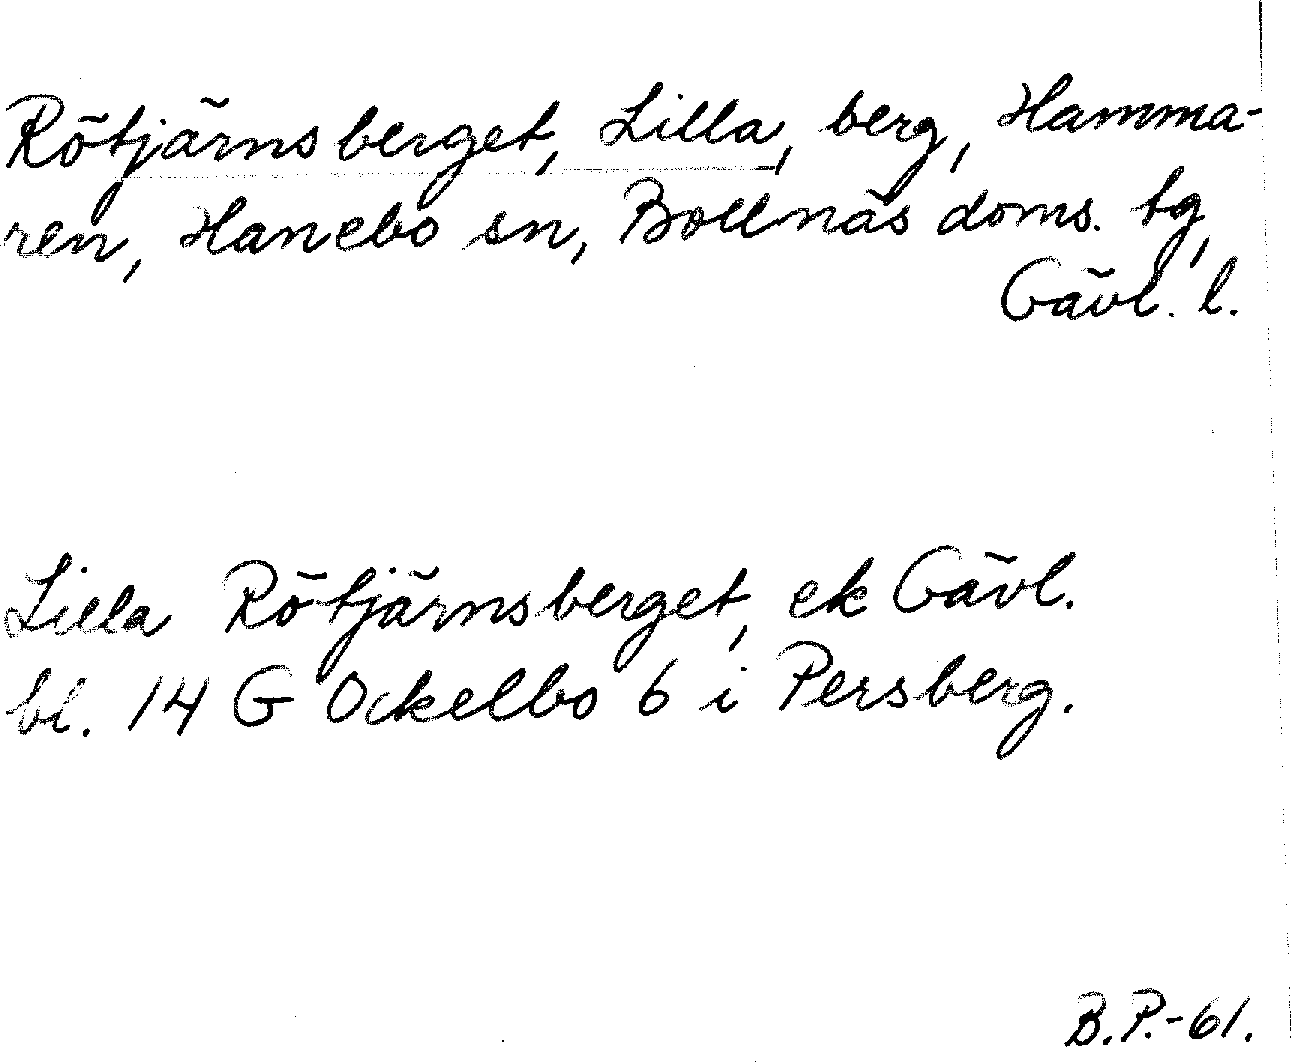 Rötjärnsberget, Lilla, berg, Hamma-
ren, Hanebo sn, Bollnäs doms. tg,
Gävl. l.
Lilla Rötjärnsberget, ek Gävl.
bl. 14 G Ockelbo 6 i Persberg.
B.P.-61.